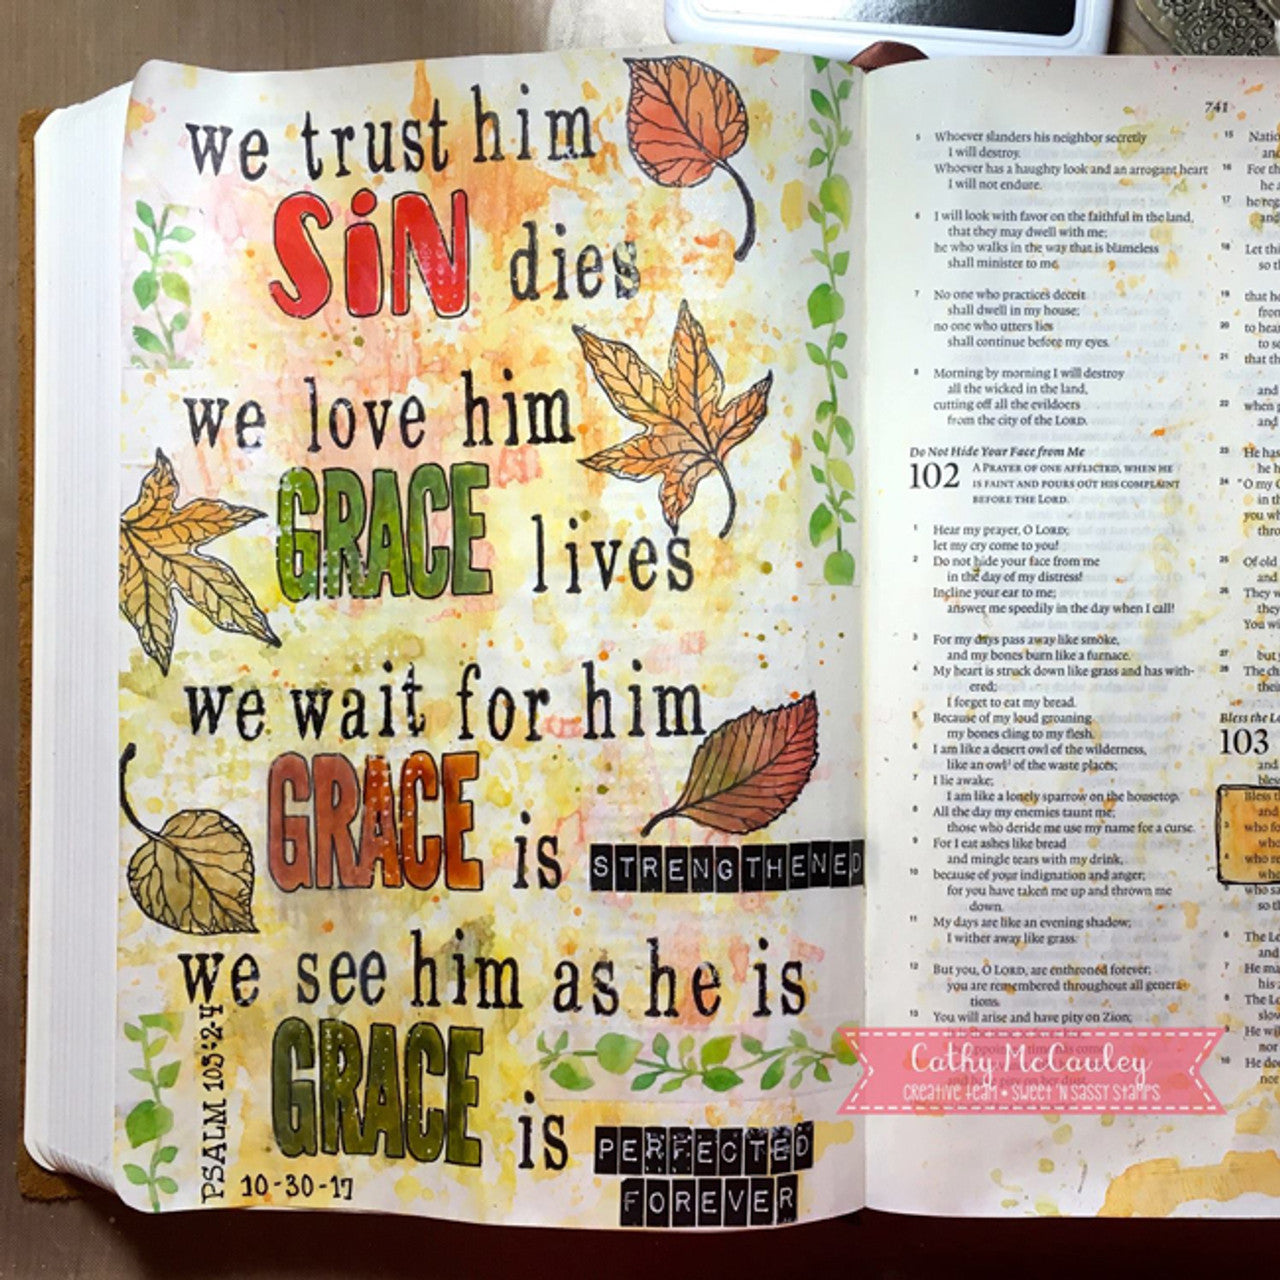 we trust him
SiN dies
we love him
GRACE lives
we wait for him
GRACE is STRENGTHENED
we see him as he is
GRACE is PERFECTED
FOREVER
PSALM 103:2-4
10-30-17
741
5 Whoever slanders his neighbor secretly
I will destroy.
Whoever has a haughty look and an arrogant heart
I will not endure.
6 I will look with favor on the faithful in the land,
that they may dwell with me;
he who walks in the way that is blameless
shall minister to me.
7 No one who practices deceit
shall dwell in my house;
no one who utters lies
shall continue before my eyes.
8 Morning by morning I will destroy
all the wicked in the land,
cutting off all the evildoers
from the city of the LORD.
Do Not Hide Your Face from Me
102 A PRAYER OF ONE AFFLICTED, WHEN HE
IS FAINT AND POURS OUT HIS COMPLAINT
BEFORE THE LORD.
1 Hear my prayer, O LORD;
let my cry come to you!
2 Do not hide your face from me
in the day of my distress!
Incline your ear to me;
answer me speedily in the day when I call!
3 For my days pass away like smoke,
and my bones burn like a furnace.
4 My heart is struck down like grass and has with-
ered;
I forget to eat my bread.
5 Because of my loud groaning
my bones cling to my flesh.
6 I am like a desert owl of the wilderness,
like an owl¹ of the waste places;
7 I lie awake;
I am like a lonely sparrow on the housetop.
8 All the day my enemies taunt me;
those who deride me use my name for a curse.
9 For I eat ashes like bread
and mingle tears with my drink,
10 because of your indignation and anger;
for you have taken me up and thrown me
down.
11 My days are like an evening shadow;
I wither away like grass.
12 But you, O LORD, are enthroned forever;
you are remembered throughout all genera-
tions.
13 You will arise and have pity on Zion;
15
16 For
17
18 Let
19 that
20
21 that
22 when
and
23 He has
24
25 Of old
and
26 They
they
You
27 but
28 The
their
Bless the
103
and
who
6 The
and
7 He
his
8 The
slow
9 He
nor
10 He
nor
Cathy McCauley
CREATIVE TEAM • SWEET 'N SASSY STAMPS